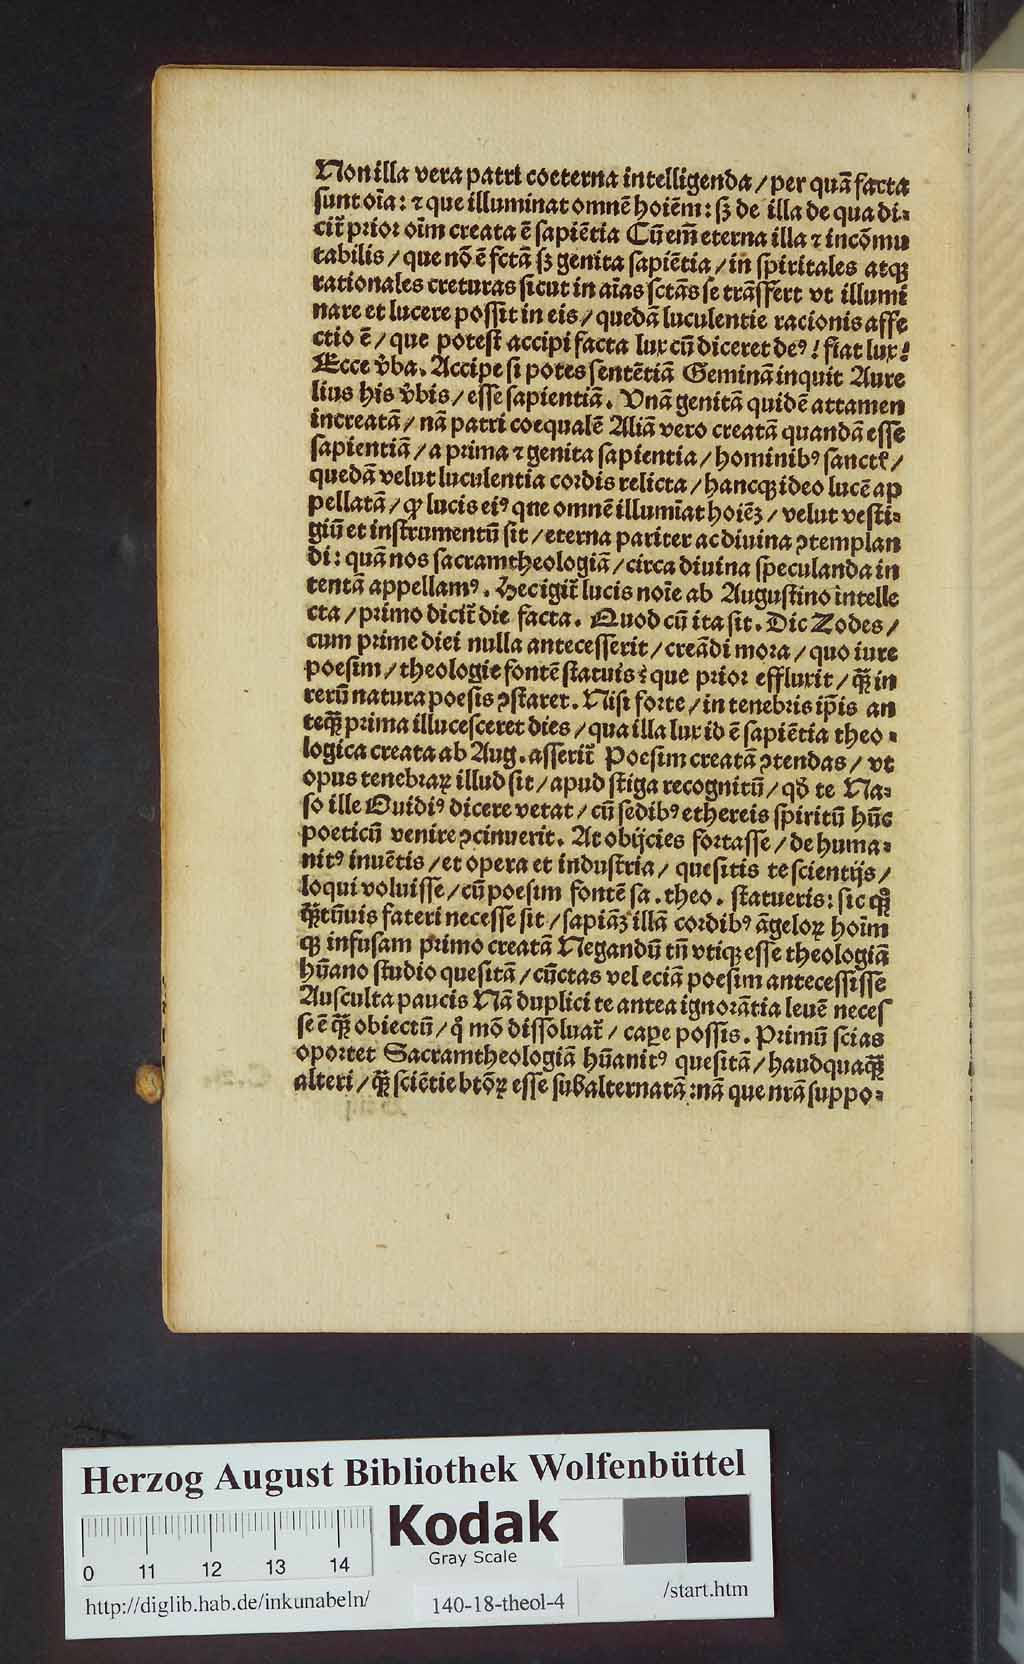 Non illa vera patri coeterna intelligenda / per quā facta
sunt oīa: ⁊ que illuminat omnē hoiēm: sꝫ de illa de qua di⸗
cit᷑ prior oīm creata ē sapiētia Cū em̄ eterna illa ⁊ incōmu
tabilis / que nō ē fctā sꝫ genita sapiētia / in spiritales atqꝫ
rationales creturas sicut in aīas sctās se trāsfert vt illumi
nare et lucere possit in eis / quedā luculentie racionis affe
ctio ē / que potest accipi facta lux cū diceret deꝰ! fiat lux!
Ecce v̓ba. Accipe si potes sentētiā Geminā inquit Aure
lius his v̓bis / esse sapientiā. Vnā genitā quidē attamen
increatā / nā patri coequalē Aliā vero creatā quandā esse
sapientiā / a prima ⁊ genita sapientia / hominibꝰ sanctꝭ /
quedā velut luculentia cordis relicta / hancqꝫ ideo lucē ap
pellatā / ꝙ lucis eiꝰ que omnē illumīat hoiēꝫ / velut vesti⸗
giū et instrumentū sit / eterna pariter ac diuina ꝯtemplan
di: quā nos sacramtheologiā / circa diuina speculanda in
tentā appellamꝰ. Hec igit᷑ lucis noīe ab Augustino intelle
cta / primo dicit᷑ die facta. Quod cū ita sit. Dic Zodes /
cum prime diei nulla antecesserit / creādi mora / quo iure
poesim / theologie fontē statuis? que prior effluxit / qꝫ̄ in
rerū natura poesis ꝯstaret. Nisi forte / in tenebris ip̄is an
teqꝫ̄ prima illucesceret dies / qua illa lux id ē sapiētia theo⸗
logica creata ab Aug. asserit᷑ Poesim creatā ꝯtendas / vt
opus tenebraꝝ illud sit / apud stiga recognitū / qd̓ te Na⸗
so ille Ouidiꝰ dicere vetat / cū sedibꝰ ethereis spiritū hūc
poeticū venire ꝯcinuerit. At obijcies fortasse / de huma⸗
nitꝰ inuētis / et opera et industria / quesitis te scientijs /
loqui voluisse / cū poesim fontē sa. theo. statueris: sic qꝫ̊
qꝫ̄tūuis fateri necesse sit / sapiāꝫ illā cordibꝰ āgeloꝝ hoīm
qꝫ infusam primo creatā Negandū tn̄ vtiqꝫ esse theologiā
hūano studio quesitā / cūctas vel eciā poesim antecessisse
Ausculta paucis Nā duplici te antea ignorātia leuē neces
se ē qꝫ̄ obiectū / q̊ mō dissoluat᷑ / caꝑe possis. Primū scias
oportet Sacramtheologiā hūanitꝰ quesitā / haudquaqꝫ̄
alteri / qꝫ̄ sciētie btōꝝ esse subalternatā: nā que nrā suppo⸗
Herzog August Bibliothek Wolfenbüttel
0 11 12 13 14
Kodak
Gray Scale
http://diglib.hab.de/inkunabeln/
140-18-theol-4
/start.htm